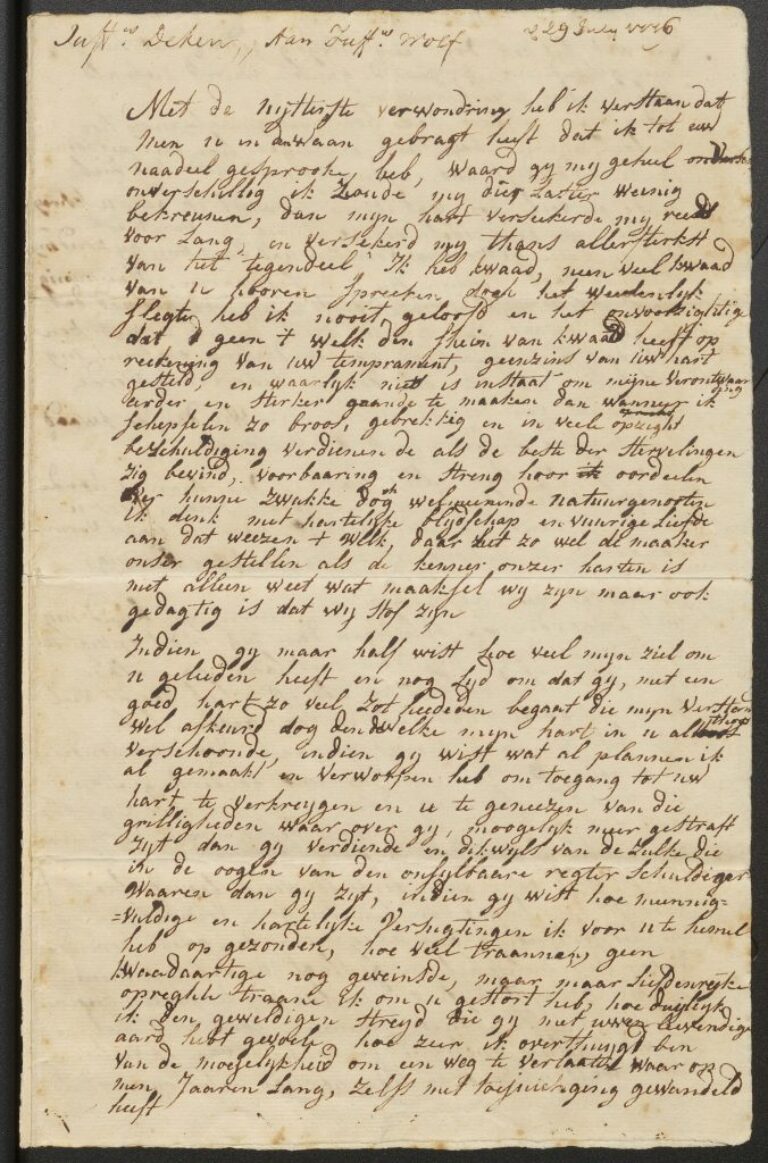 Juffw Deken, Aan Juffw Wolf 29 July 1776
Met de uijtterste verwondring heb ik verstaan dat
men u in den waan gebragt heeft dat ik tot uw
naadeel gesprooke heb, waard gy my geheel
onverschillig ik zoude my dier laster weinig
bekreunen, dan myn hart verseekerde my reeds
voor lang, en versekerd my thans allersterkst
van het tegendeel Ik heb kwaad, neen veel kwaad
van u hooren spreeken dogh het weezenlyk
slegte heb ik nooit geloofd en het onvoorzigtige
dat geen t welk den schein van kwaad heeft op
reekening van uw temprament, geenzins van uw hart
gesteld, en waarlyk niets is instaat om mijne verontwaar
diging
eerder en sterker gaande te maaken dan wanneer ik
schepselen zo broos, gebrekkig en in veele opzight
beschuldiging verdienende als de beste der stervelingen
zig bevind, voorbaarig en streng hoor oordeelen
over hunne zwakke dog welmeenende natuurgenooten
ik denk met hartelyke blydschap en vuurige liefde
aan dat weezen t welk, daar het zo wel de maaker
onser gestellen als de kenner onzer harten is
niet alleen weet wat maaksel wy zyn maar ook
gedagtig is dat wy stof zyn
Indien gy maar half wist hoe veel myn ziel om
u geleeden heeft en nog lyd om dat gy, met een
goed hart zo veel zotheeden begaat die myn verstand
wel afkeurd dog welke myn hart in u
verschoonde, indien gy wist wat al plannen ik
al gemaakt en verworpen heb om toegang tot uw
hart te verkreygen en u te geneezen van die
grilligheden waar over gy, moogelyk meer gestraft
zyt dan gy verdiende en dikwyls van de zulke die
in de oogen van den onfylbaare regter schuldiger
waaren dan gy zyt, indien gy wist hoe mennig=
=vuldige en hartelyke versugtingen ik voor u te hemel
heb op gezonden, hoe veel traannen, geen
kwaadaartige nog geveinsde, maar maar liefdenryke
opreghte traane ik om u gestort heb, hoe duijdlyk
ik den geweldigen streyd die gy met uwen levendige
aard hebt gevoele hoe zeer ik overthuygt ben
van de moejelykheid om een weg te verlaaten waar op
men Jaaren lang, zelfs met toejuichging gewandeld
heeft